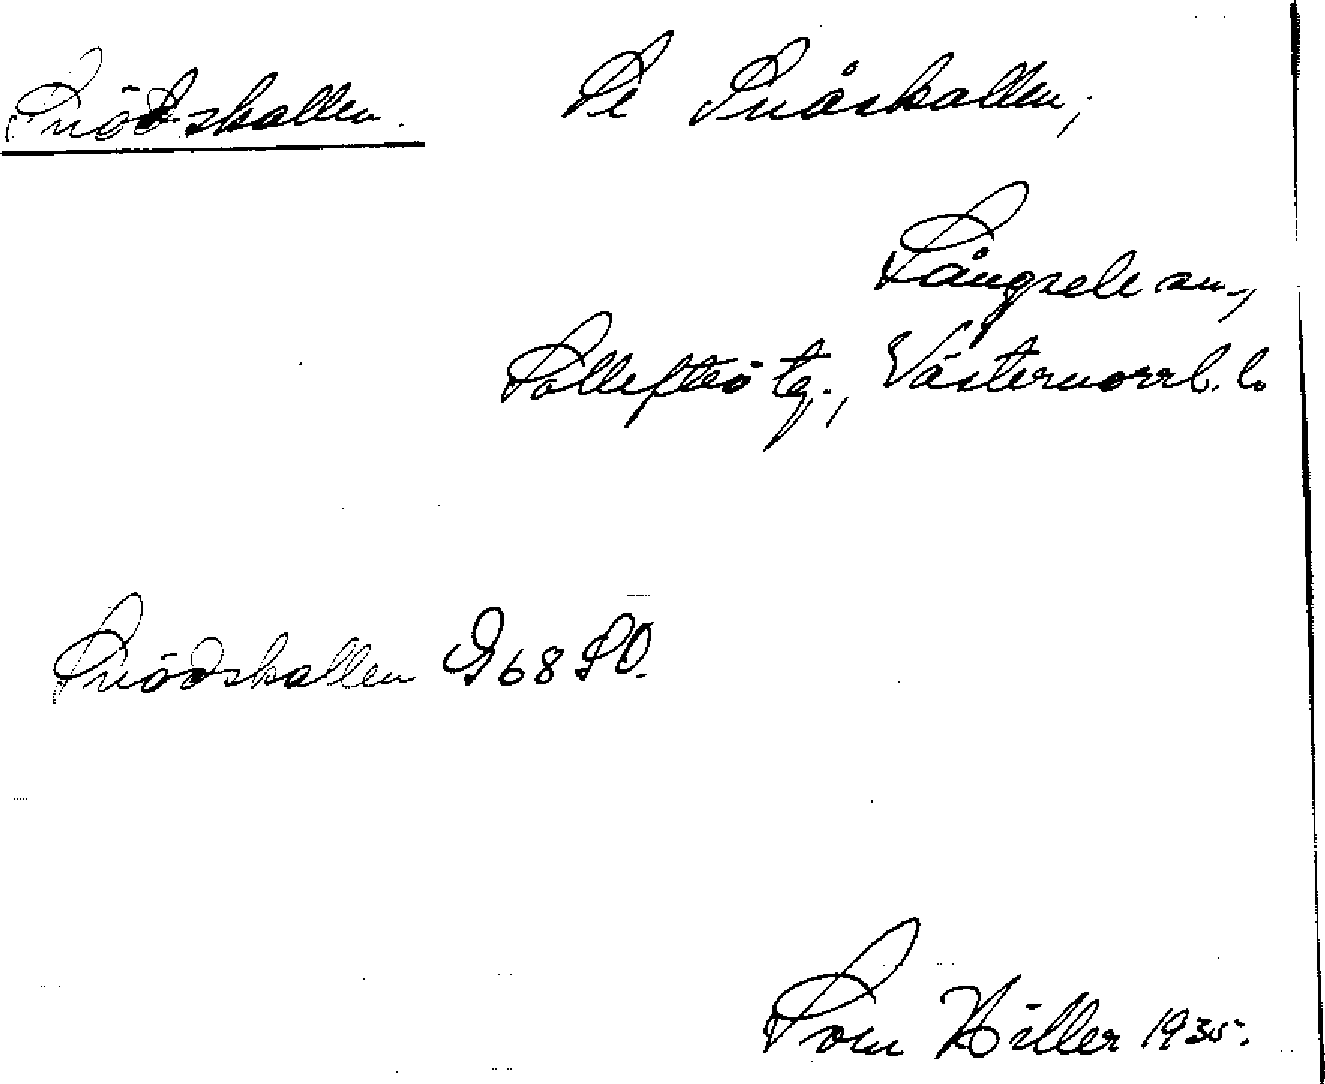 Snödskallen. Se Snåskallen,
Långsele sn.,
Sollefteå tg., Västernorrl. l.
Snödskallen G68 SO.
Hiller 1935.